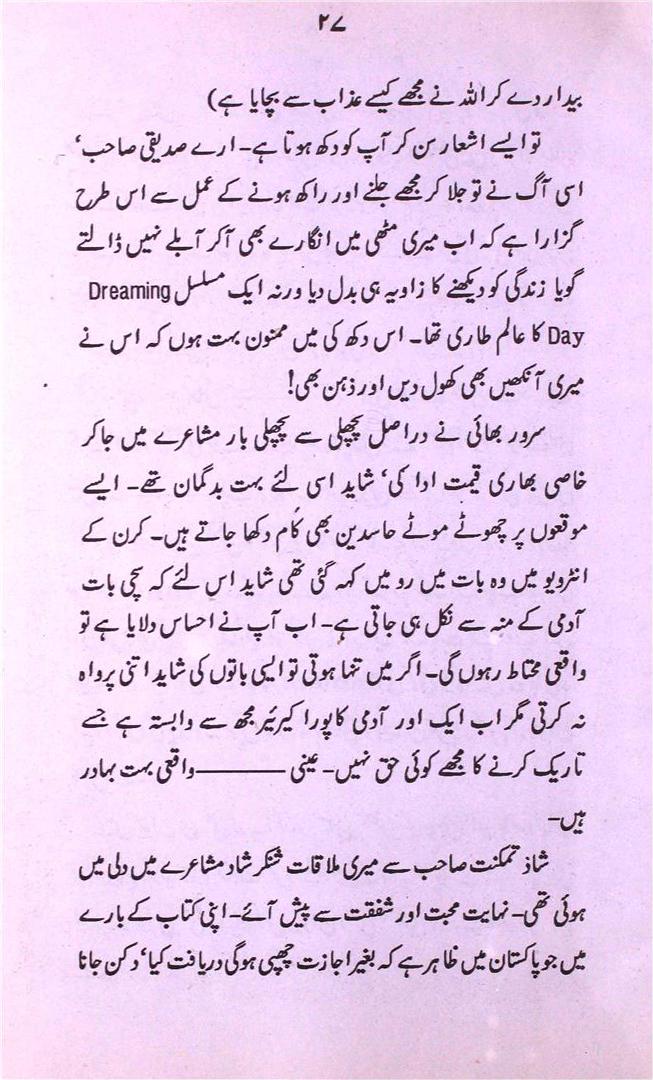 ۲۷
بیدار دے کر اللہ نے مجھے کیسے عذاب سے بچایا ہے)
تو ایسے اشعار سن کر آپ کو دکھ ہوتا ہے۔ ارے صدیقی صاحب‘
اسی آگ نے تو جلا کر مجھے جلنے اور راکھ ہونے کے عمل سے اس طرح
گزارا ہے کہ اب میری مٹھی میں انگارے بھی آ کر آبلے نہیں ڈالتے
گویا زندگی کو دیکھنے کا زاویہ ہی بدل دیا ورنہ ایک مسلسل Dreaming
Day کا عالم طاری تھا۔ اس دکھ کی میں ممنون بہت ہوں کہ اس نے
میری آنکھیں بھی کھول دیں اور ذہن بھی!
سرور بھائی نے دراصل پچھلی سے پچھلی بار مشاعرے میں جا کر
خاصی بھاری قیمت ادا کی‘ شاید اسی لئے بہت بدگمان تھے۔ ایسے
موقعوں پر چھوٹے موٹے حاسدین بھی کام دکھا جاتے ہیں۔ کرن کے
انٹرویو میں وہ بات میں رو میں کہہ گئی تھی شاید اس لئے کہ سچی بات
آدمی کے منہ سے نکل ہی جاتی ہے۔ اب آپ نے احساس دلایا ہے تو
واقعی محتاط رہوں گی۔ اگر میں تنہا ہوتی تو ایسی باتوں کی شاید اتنی پرواہ
نہ کرتی مگر اب ایک اور آدمی کا پورا کیرئیر مجھ سے وابستہ ہے جسے
تاریک کرنے کا مجھے کوئی حق نہیں۔ عینی ——— واقعی بہت بہادر
ہیں۔
شاذ تمکنت صاحب سے میری ملاقات شنکر شاد مشاعرے میں دلی میں
ہوئی تھی۔ نہایت محبت اور شفقت سے پیش آئے۔ اپنی کتاب کے بارے
میں جو پاکستان میں ظاہر ہے کہ بغیر اجازت چھپی ہوگی دریافت کیا‘ دکن جانا